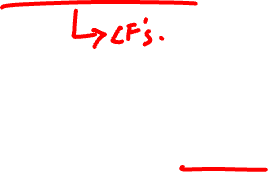 ↳ CF's.